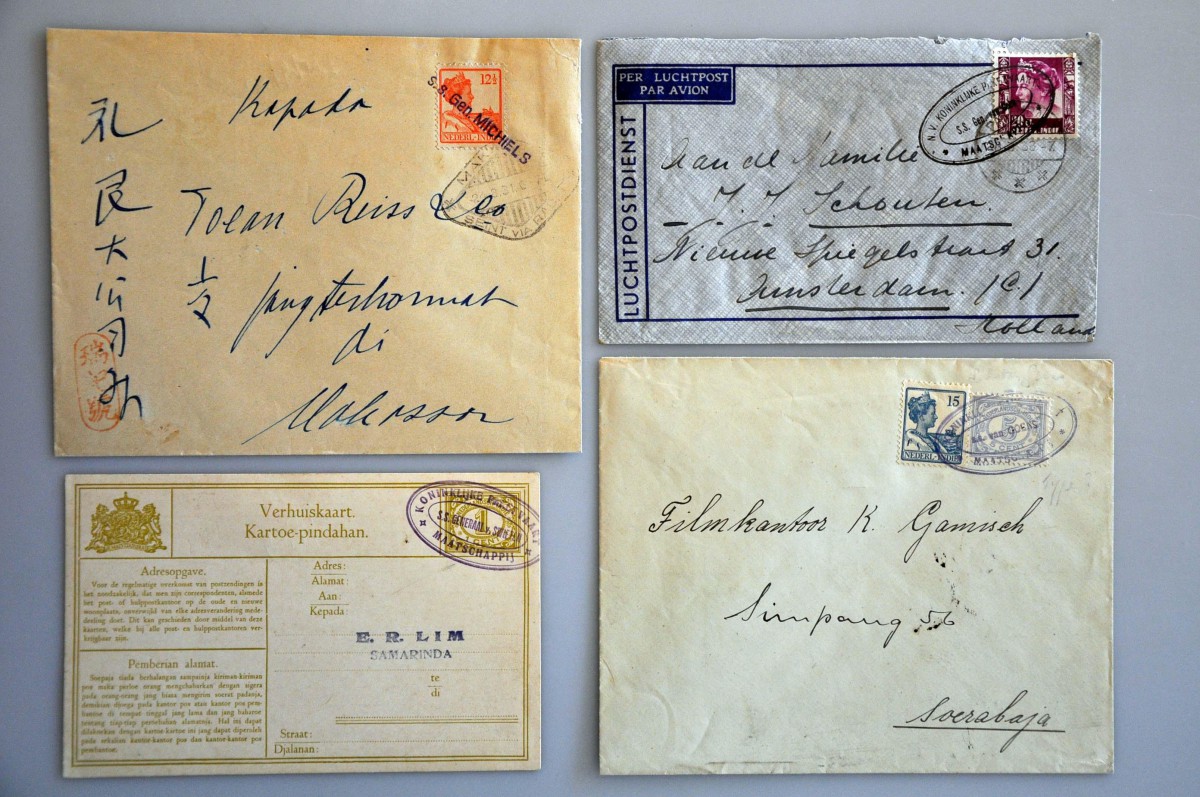 Kapada
Toean Reiss & Co
½ jangterhormat
di
Makassar
大
12½
NEDERL-INDIË
s.s. Gen. MICHIELS
PER LUCHTPOST
PAR AVION
LUCHTPOSTDIENST
N.V. KONINKLIJKE
S.S. Gen.
Aan de Familie
J. J. Schouten.
Nieuwe Spiegelstraat 31.
Amsterdam. (C.)
Holland
Verhuiskaart.
Kartoe-pindahan.
KONINKLIJKE
S.S. GENERAAL v.
MAATSCHAPPIJ
Adresopgave.
Voor de regelmatige overkomst van postzendingen is
het noodzakelijk, dat men zijn correspondenten, alsmede
het post- of hulppostkantoor op de oude en nieuwe
woonplaats, onverwijld van elke adresverandering mede-
deeling doet. Dit kan geschieden door middel van deze
kaarten, welke bij alle post- en hulppostkantoren ver-
krijgbaar zijn.
Pemberian alamat.
Soepaja tiada berhalangan sampainja kiriman-kiriman
pos maka perloe orang mengchabarkan dengan sigera
pada orang-orang jang biasa mengirim soerat padanja,
demikian djoega pada kantor pos atau kantor pos pem-
bantoe di tempat tinggal jang lama dan jang baharoe
tentang tiap-tiap perobahan alamatnja. Hal ini dapat
dilakoekan dengan kartoe-kartoe ini jang dapat diperoleh
pada sekalian kantor-kantor pos dan kantor-kantor pos
pembantoe.
Adres:
Alamat:
Aan:
Kepada
E. R. LIM
SAMARINDA
te
di
Straat:
Djalanan:
15
NEDERL-INDIË
5
CENT
Filmkantoor K. Gamisch
Simpang 56
Soerabaja